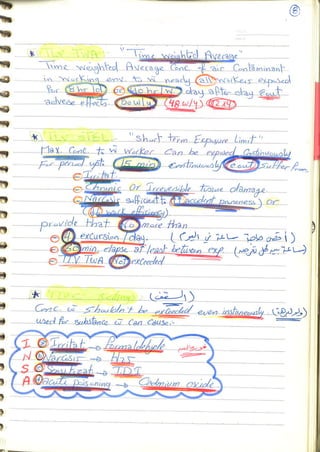 TLV TWA "Time weighted Average"
Time weighted Average Conc of air Contaminant
in working env to w nearly all workers exposed
for 8 hr/d or 40 hr/w day after day &out
adverse effects.
* TLV STEL "Short term Exposure Limit"
Max. Conc to w worker can be exposed Continuously
For period upto 15 min continuously &out suffer from
Irritat
Chronic or Irreversible tissue damage
Narcosis sufficient to (↑ accident proneness) or
(↓ work efficiency)
provide that no more than
4 excursion / day.
60 min elapse at least between exp
TLV TWA Not exceeded
* TLV Ceiling (السقف)
Conc w shouldn't be exceeded even instaneously
used for substance w can cause:
I Irritat → Formaldehyde
N Narcosis → H2S
S Sensitizat → TDI
A Acute poisoning → Cadmium oxide